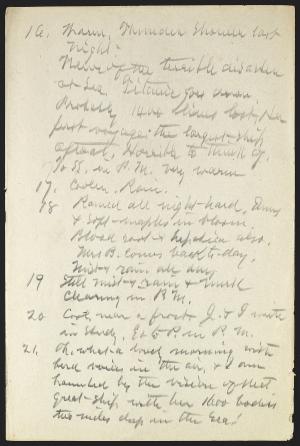 16. Warm, Thunder Shower last
night.
News of the terrible disaster
at sea. Titanic goes down
Probably 1400 lives lost, her
first voyage: the largest ship
afloat, Horrible to think of.
to 55, in P.M. very warm
17. Cooler. Rain.
18 Rained all night - hard, Elms
& soft-maples in bloom.
Blood root & hepatica also.
Mrs B. comes back to-day.
Mist & rain all day
19 Still mist & rain & murk
Clearing in P.M.
20 Cool, near a frost J. & I write
in Study, to P. in P.M.
21. Oh, what a lovely morning with
bird voices in the air, & I am
haunted by the vision of that
great ship with her 1600 bodies
two miles deep in the Sea!